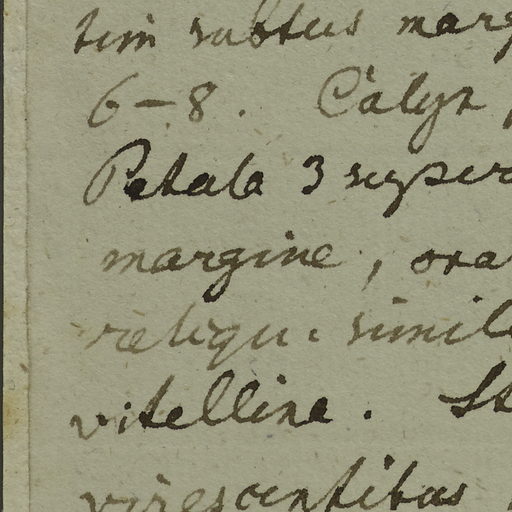 tim subtus marg
6-8. Calyx
Petala 3 super
margine, ora
reliqui simil
vitelline. St
virescentibus